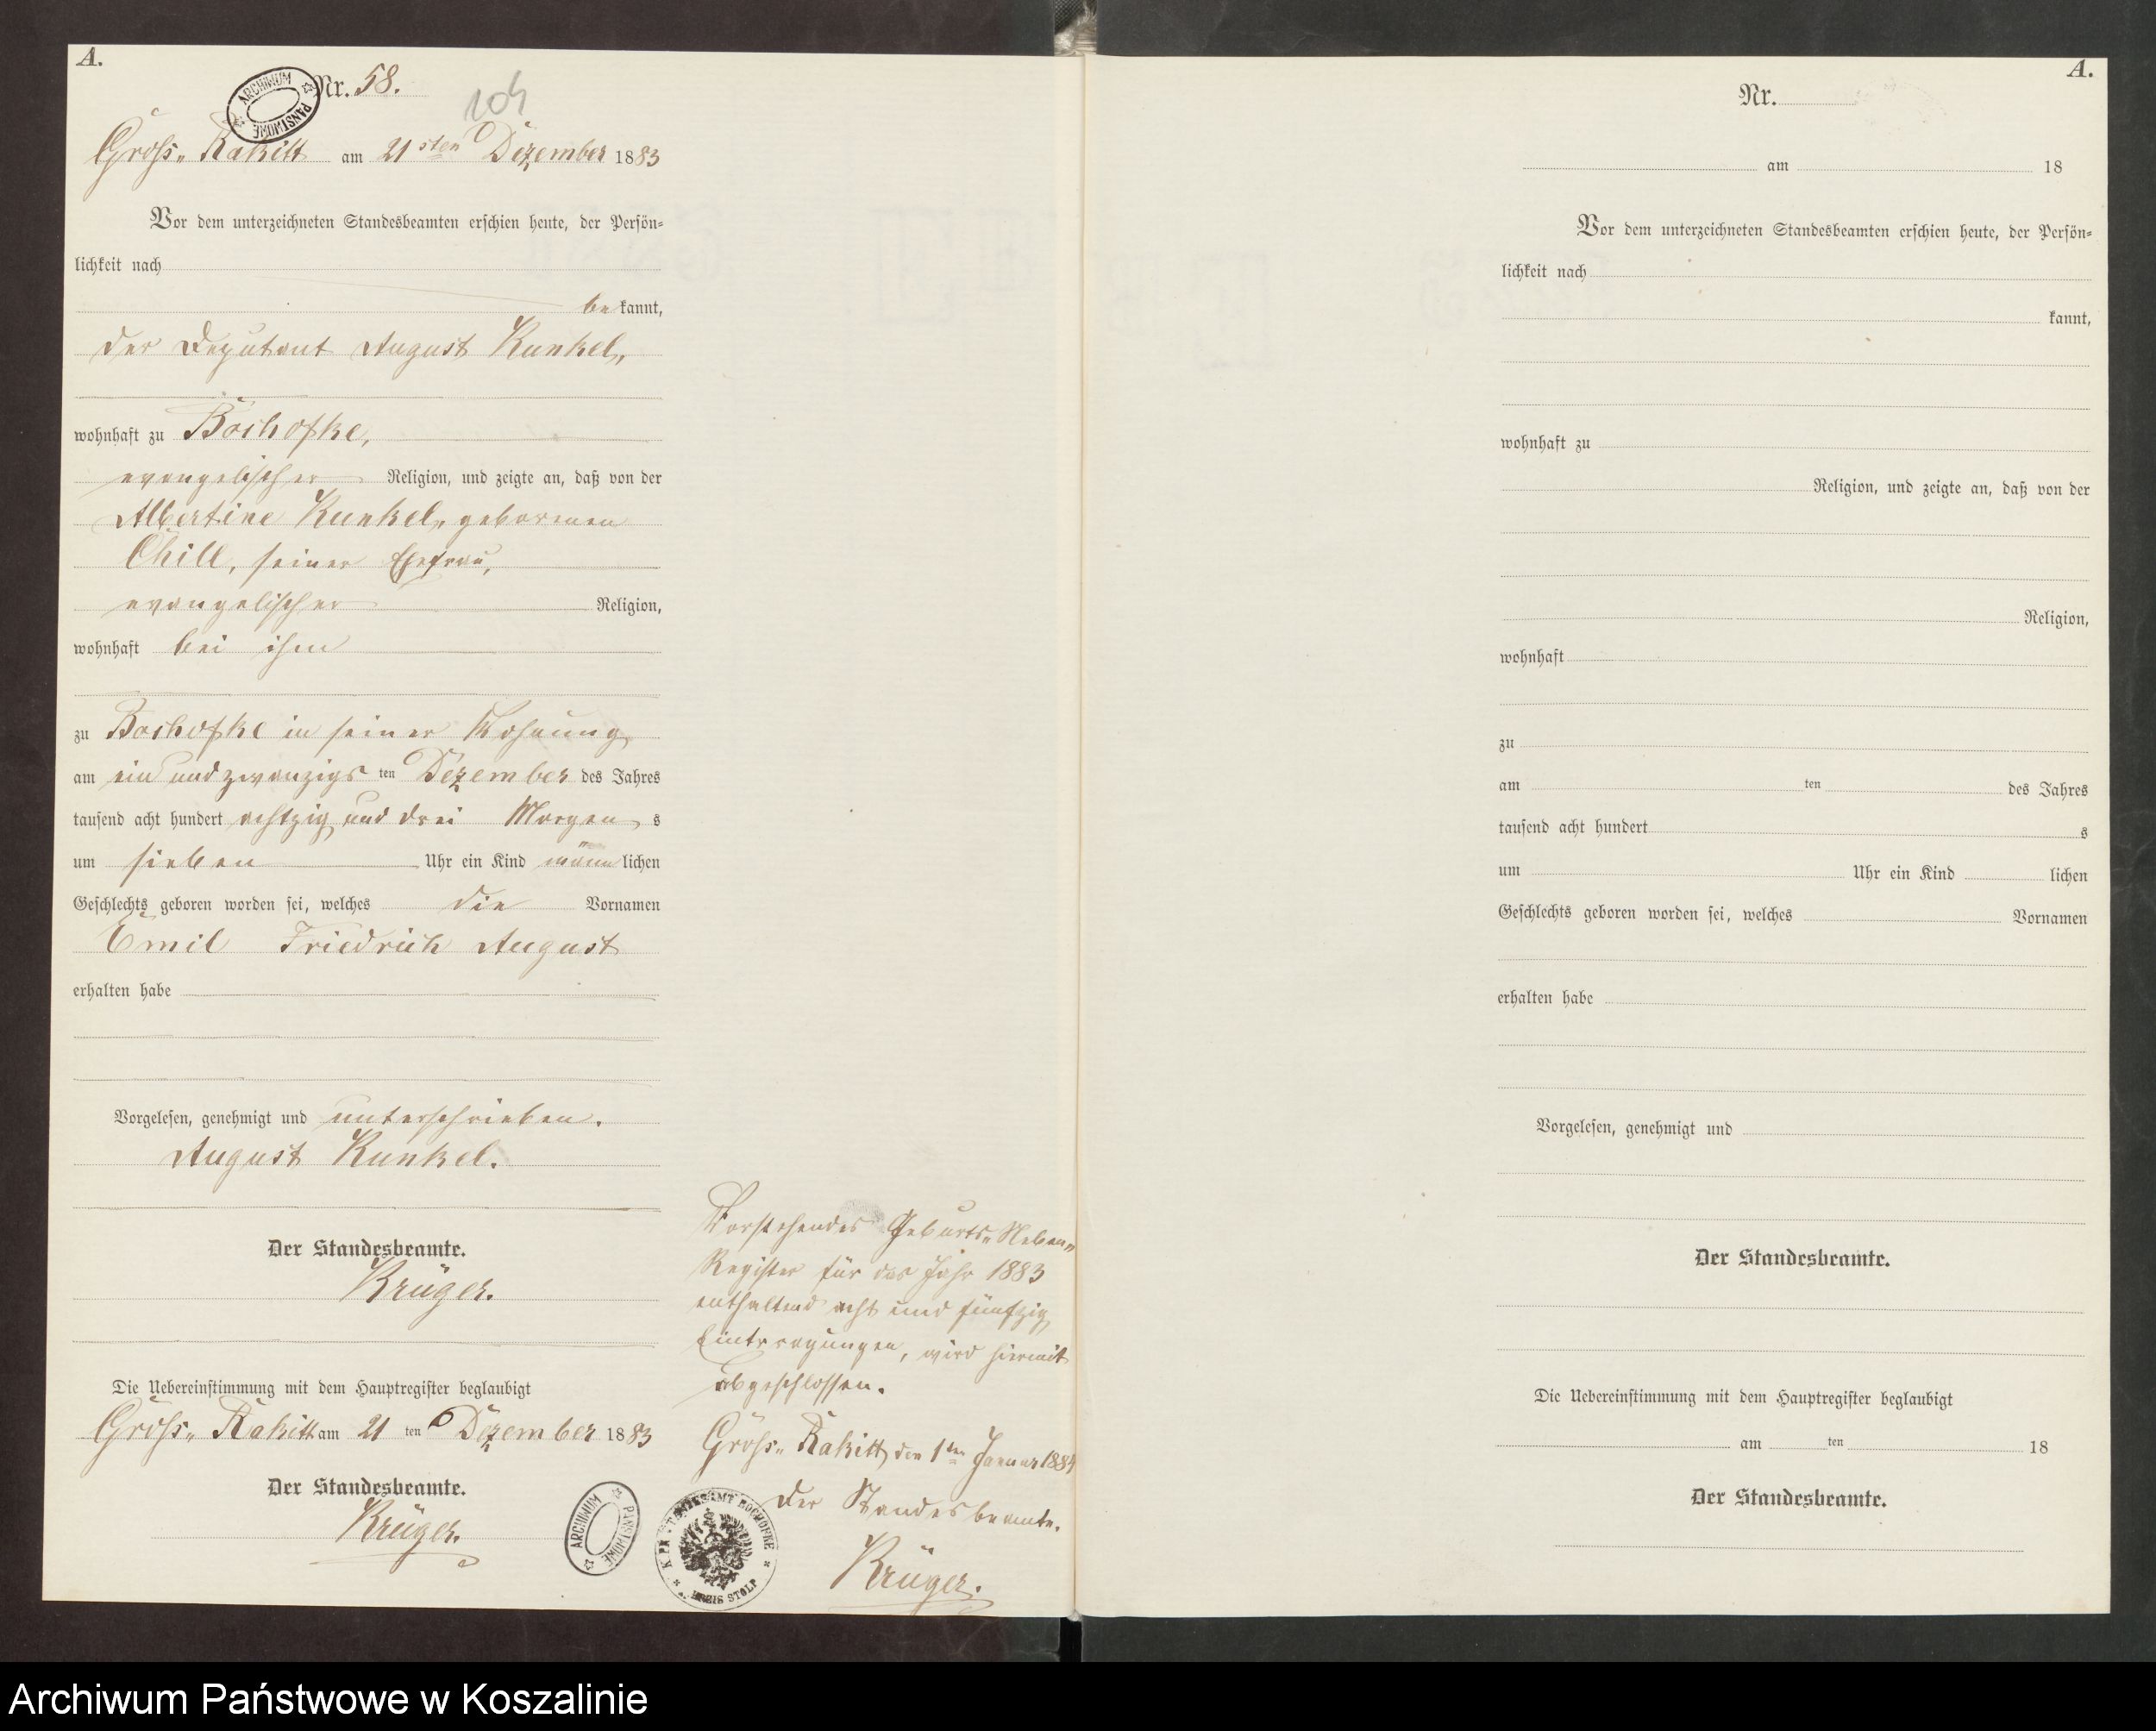 A.
Nr. 58.
104
ARCHIWUM PAŃSTWOWE
Gross„ Rakitt am 21sten Dezember 1883
Vor dem unterzeichneten Standesbeamten erschien heute, der Persön-
lichkeit nach
be kannt,
der Deputant August Kunkel,
wohnhaft zu Bochofke,
evangelischer Religion, und zeigte an, daß von der
Albertine Kunkel, geborenen
Chill, seiner Ehefrau,
evangelischer Religion,
wohnhaft bei ihm
zu Bochofke in seiner Wohnung
am ein und zwanzigs ten Dezember des Jahres
tausend acht hundert achtzig und drei Morgen s
um sieben Uhr ein Kind männ lichen
Geschlechts geboren worden sei, welches die Vornamen
Emil Friedrich August
erhalten habe
Vorgelesen, genehmigt und unterschrieben.
August Kunkel.
Der Standesbeamte.
Krüger.
Die Uebereinstimmung mit dem Hauptregister beglaubigt
Gross„ Rakitt am 21 ten Dezember 1883
Der Standesbeamte.
Krüger.
ARCHIWUM PAŃSTWOWE
Vorstehendes Geburts„Neben„
Register für das Jahr 1883
enthaltend acht und fünfzig
Eintragungen, wird hiermit
abgeschlossen.
Gross„ Rakitt, den 1ten Januar 1884
Der Standesbeamte.
Krüger.
STANDESAMT BOCHOFKE
KREIS STOLP
A.
Nr.
am 18
Vor dem unterzeichneten Standesbeamten erschien heute, der Persön-
lichkeit nach
kannt,
wohnhaft zu
Religion, und zeigte an, daß von der
Religion,
wohnhaft
zu
am ten des Jahres
tausend acht hundert s
um Uhr ein Kind lichen
Geschlechts geboren worden sei, welches Vornamen
erhalten habe
Vorgelesen, genehmigt und
Der Standesbeamte.
Die Uebereinstimmung mit dem Hauptregister beglaubigt
am ten 18
Der Standesbeamte.
Archiwum Państwowe w Koszalinie